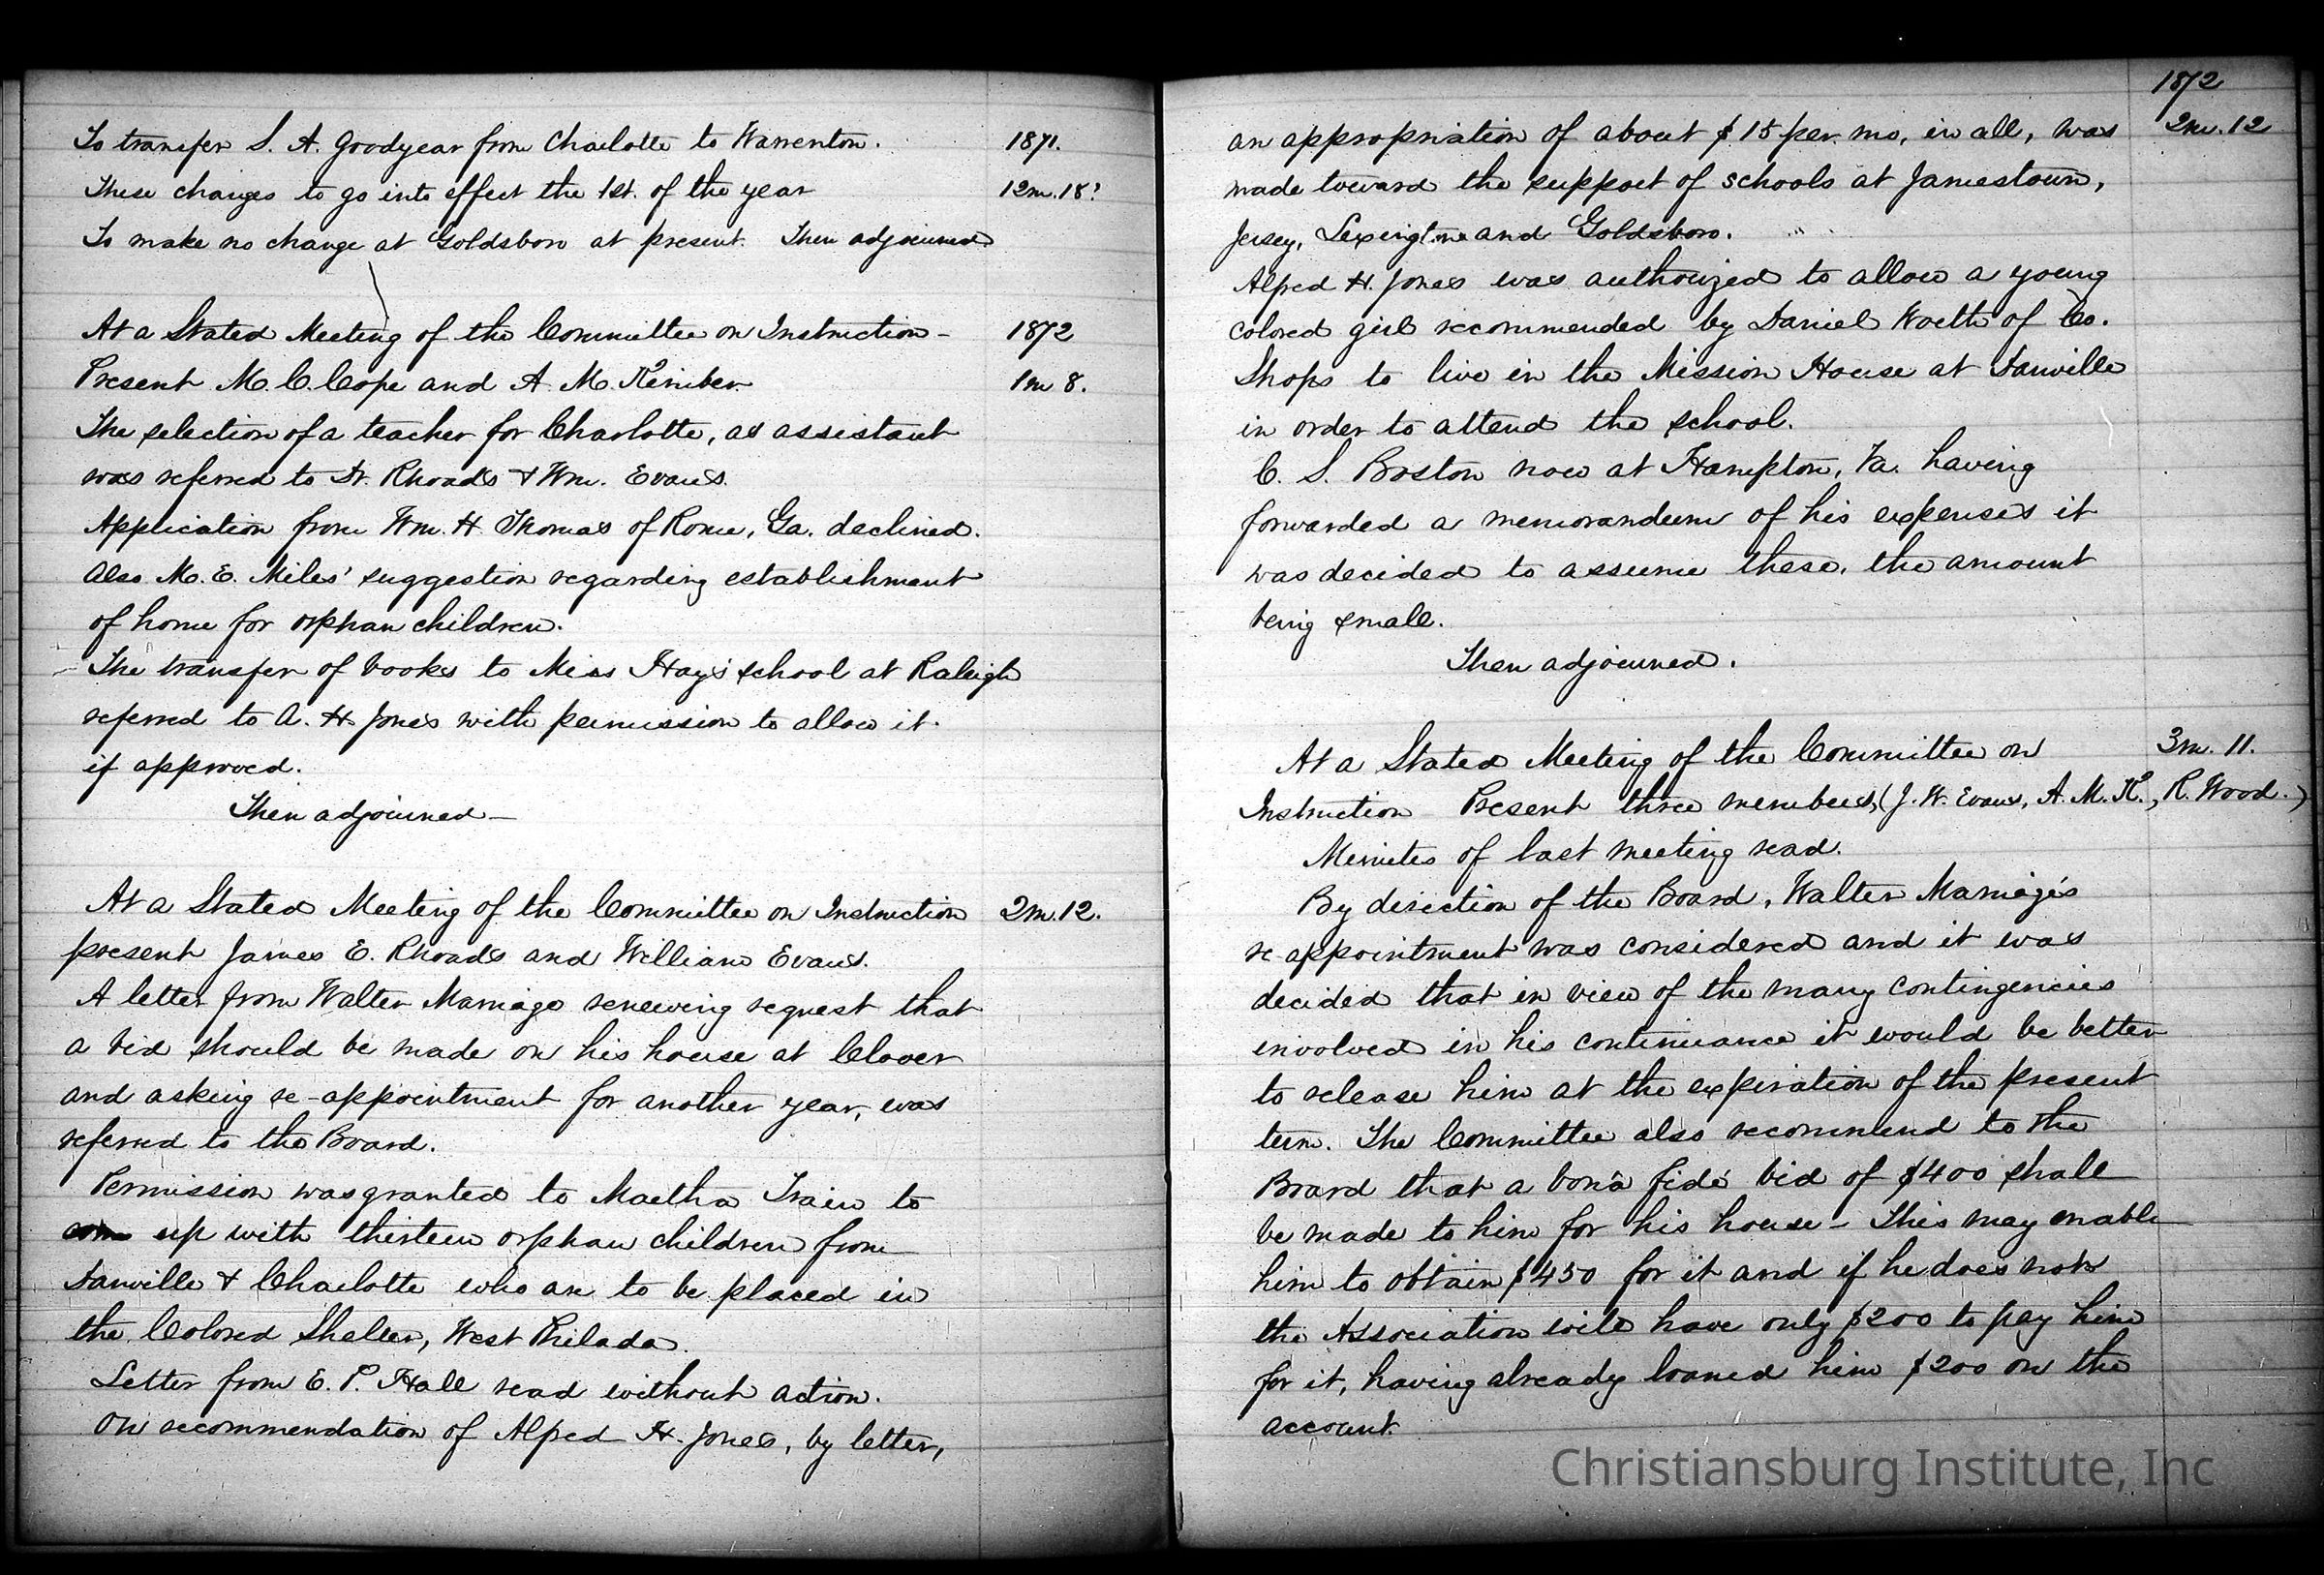 To transfer S. A. Goodyear from Charlotte to Warrenton. 1871.
These changes to go into effect the 1st. of the year 12m.18?
To make no change at Goldsboro at present. Then adjourned
At a Stated Meeting of the Committee on Instruction - 1872
Present M. C. Cope and A. M. Kimber 1m 8.
The selection of a teacher for Charlotte, as assistant
was referred to Dr. Rhoads & Wm. Evans.
Application from Wm. H. Thomas of Rome, Ga. declined.
Also M. E. Miles' suggestion regarding establishment
of home for orphan children.
The transfer of books to Miss Hays' school at Raleigh
referred to A. H. Jones with permission to allow it.
if approved.
Then adjourned —
At a Stated Meeting of the Committee on Instruction 2m.12.
present James E. Rhoads and William Evans.
A letter from Walter Marriage renewing request that
a bid should be made on his house at Clover
and asking re-appointment for another year, was
referred to the Board.
Permission was granted to Martha Train to
up with thirteen orphan children from
Danville & Charlotte who are to be placed in
the Colored Shelter, West Philada.
Letter from E. P. Hall read without action.
On recommendation of Alfred H. Jones, by letter,
1872
an appropriation of about $15 per mo, in all, was 2m.12
made toward the support of schools at Jamestown,
Jersey, Lexington and Goldsboro.
Alfred H. Jones was authorized to allow a young
colored girl recommended by Daniel Worth of Co.
Shops to live in the Mission House at Danville
in order to attend the school.
C. S. Boston now at Hampton, Va. having
forwarded a memorandum of his expenses it
was decided to assume these, the amount
being small.
Then adjourned.
At a Stated Meeting of the Committee on 3m. 11.
Instruction Present three members, (J. W. Evans, A. M. K., R. Wood.)
Minutes of last meeting read.
By direction of the Board, Walter Marriage's
re appointment was considered and it was
decided that in view of the many contingencies
involved in his continuance it would be better
to release him at the expiration of the present
term. The Committee also recommend to the
Board that a bonâ fide bid of $400 shall
be made to him for his house - This may enable
him to obtain $450 for it and if he does not
the Association will have only $200 to pay him
for it, having already loaned him $200 on the
account.
Christiansburg Institute, Inc